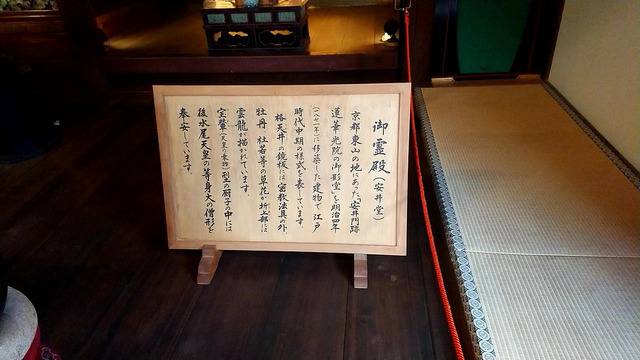 御霊殿（安井堂）
京都東山の地にあった「安井門跡
蓮華光院の御影堂」を明治四年
（一八七一年）に移築した建物で江戸
時代中期の様式を表しています
格天井の鏡板には密教法具の外
牡丹、杜若等の草花が折上部には
雲龍が描かれています。
宝輦（天皇の乗物）型の厨子の中には
後水尾天皇の等身大の僧形を
奉安しています。